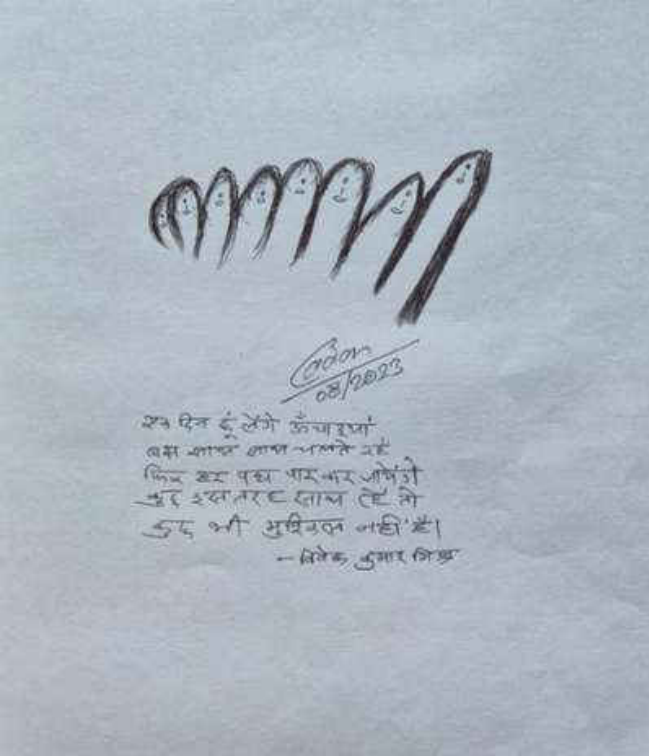 08/2023
एक दिन छू लेंगे ऊँचाइयां
बस साथ साथ चलते रहें
फिर हर पथ पार कर जायेंगे
कुछ इस तरह साथ रहें तो
कुछ भी मुश्किल नहीं है।
- विवेक कुमार मिश्र